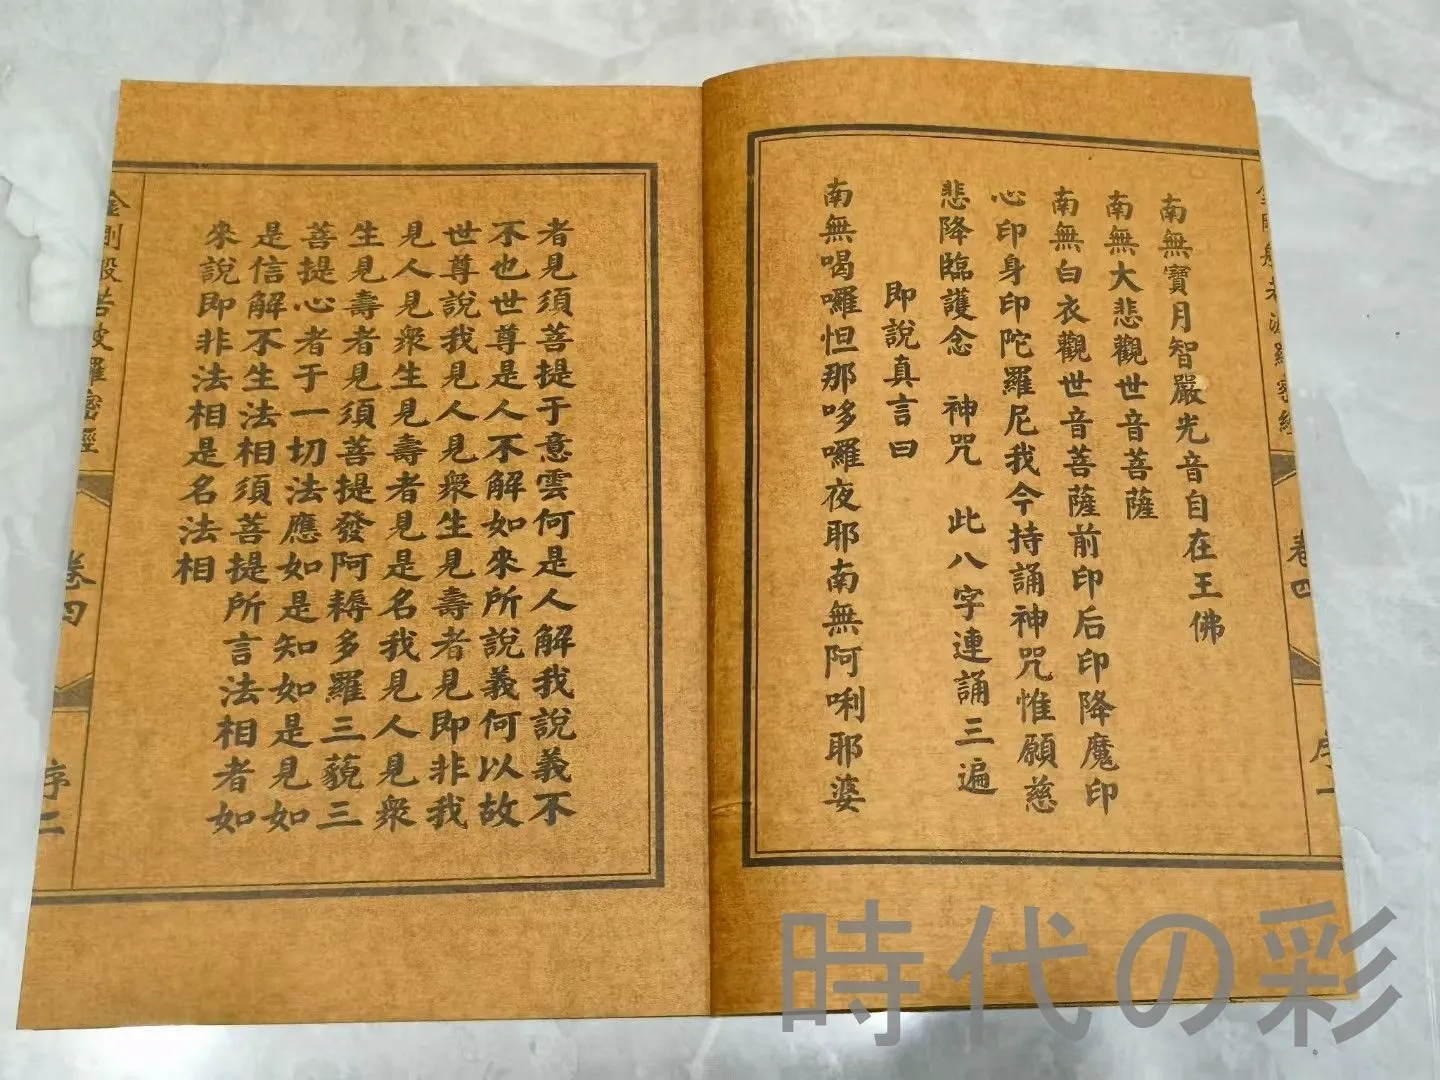 南無寶月智嚴光音自在王佛
南無大悲觀世音菩薩
南無白衣觀世音菩薩前印后印降魔印
心印身印陀羅尼我今持誦神咒惟願慈
悲降臨護念 神咒 此八字連誦三遍
即說真言曰
南無喝囉怛那哆囉夜耶南無阿唎耶婆
卷四
者見須菩提于意雲何是人解我說義不
不也世尊是人不解如來所說義何以故
世尊說我見人見衆生見壽者見即非我
見人見衆生見壽者見是名我見人見衆
生見壽者見須菩提發阿耨多羅三藐三
菩提心者于一切法應如是知如是見如
是信解不生法相須菩提所言法相者如
來說即非法相是名法相
金剛般若波羅密經
卷四
序二
時代の彩